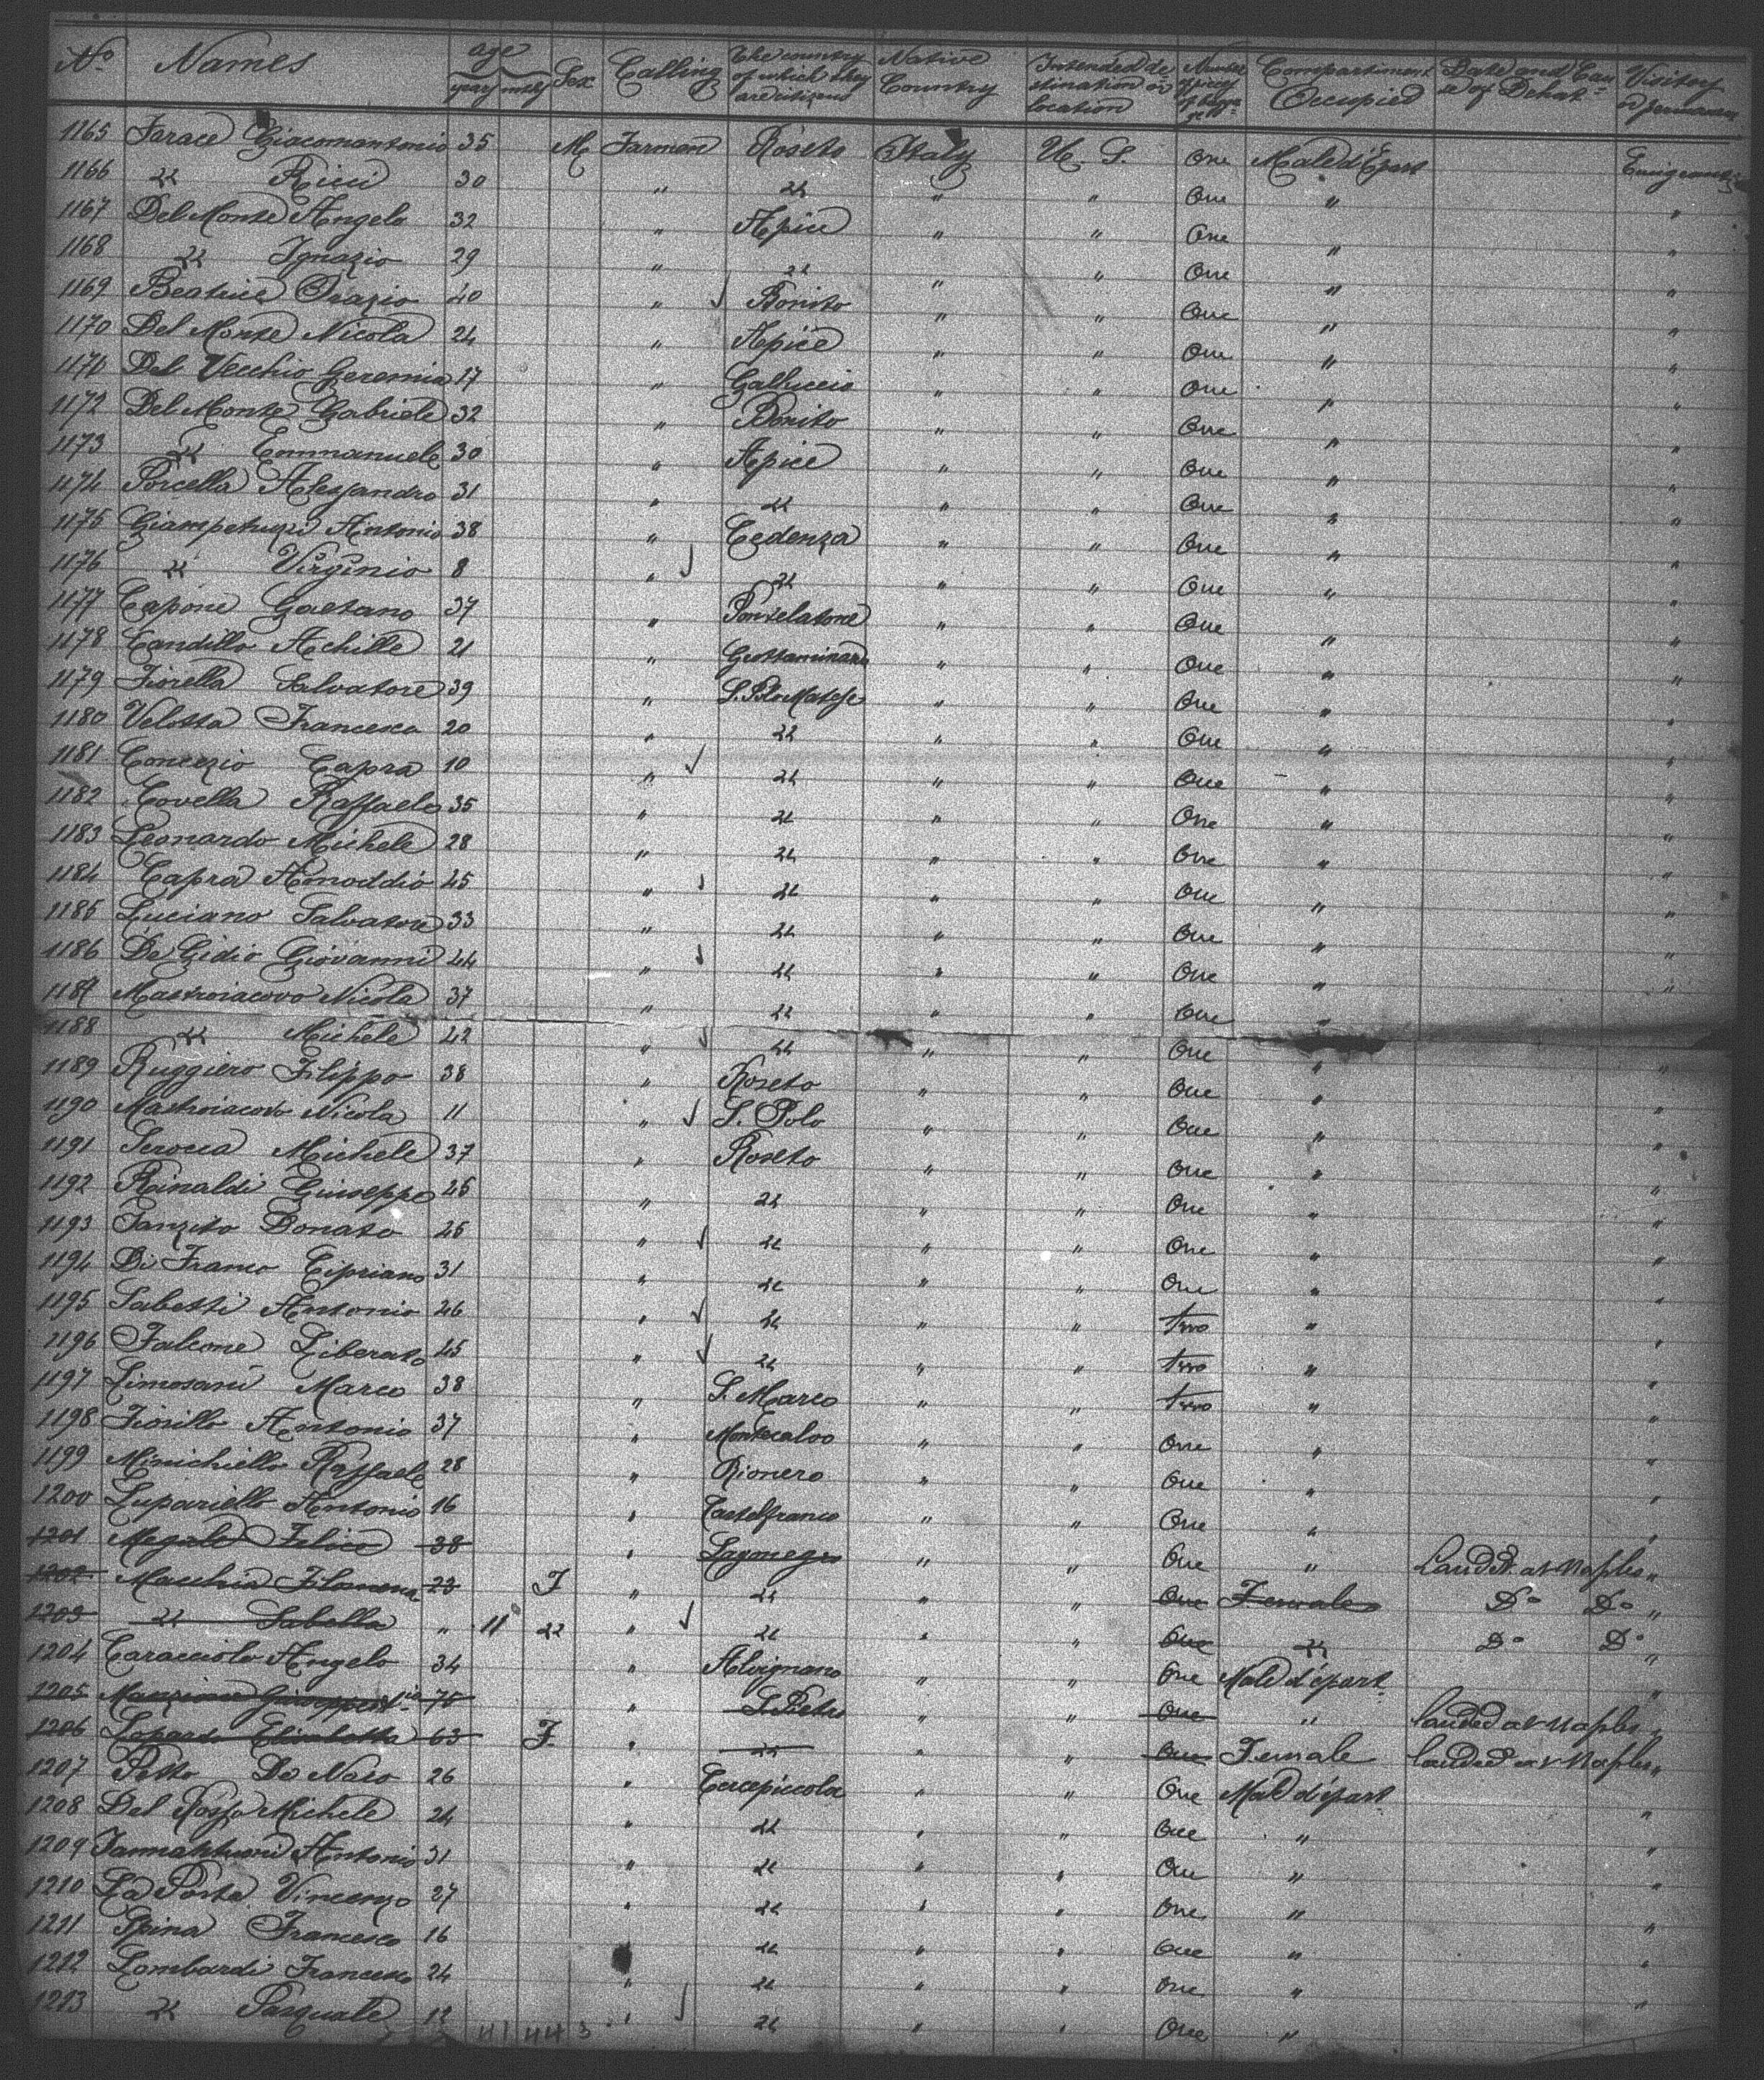 No Names age years mths Sex Calling The country of which they are citizens Native Country Intended destination or location Number of pieces of baggage Compartiment Occupied Date and Cause of Dehat Visitory or permanent
1165 Farace Giacomantonio 35 M Farmen Roseto Italy U. S. One Male d'Epart Emigrant
1166 " Ricci 30 " " " " One " "
1167 Del Monte Angelo 32 " Apice " " One " "
1168 " Ignazio 29 " " " " One " "
1169 Beatrice Orazio 40 " Bonito " " One " "
1170 Del Monte Nicola 24 " Apice " " One " "
1171 Del Vecchio Geremia 17 " Galluccio " " One " "
1172 Del Monte Gabriele 32 " Bonito " " One " "
1173 " Emmanuele 30 " Apice " " One " "
1174 Porcella Alessandro 31 " " " " One " "
1175 Giampetruzzi Antonio 38 " Cedenza " " One " "
1176 " Virginio 8 " " " " One " "
1177 Capone Gaetano 37 " Pontelatone " " One " "
1178 Candillo Achille 21 " Grottaminarda " " One " "
1179 Fiorella Salvatore 39 " S. Polo Matese " " One " "
1180 Velotta Francesco 20 " " " " One " "
1181 Concezio Capra 10 " " " " One " "
1182 Covella Raffaele 35 " " " " One " "
1183 Leonardo Michele 28 " " " " One " "
1184 Capra Amoddio 45 " " " " One " "
1185 Luciano Salvatore 33 " " " " One " "
1186 De Gidio Giovanni 44 " " " " One " "
1187 Mastroiacovo Nicola 37 " " " " One " "
1188 " Michele 42 " " " " One " "
1189 Ruggiero Filippo 38 " Roseto " " One " "
1190 Mastroiacovo Nicola 11 " S. Polo " " One " "
1191 Serocca Michele 37 " Roseto " " One " "
1192 Rinaldi Giuseppe 25 " " " " One " "
1193 Fanzito Donato 26 " " " " One " "
1194 Di Franco Cipriano 31 " " " " One " "
1195 Sabetti Antonio 26 " " " " two " "
1196 Falcone Liberato 45 " " " " two " "
1197 Limosani Marco 38 " S. Marco " " two " "
1198 Fiorillo Antonio 37 " Montecalvo " " One " "
1199 Minichiello Raffaele 28 " Rionero " " One " "
1200 Lupariello Antonio 16 " Castelfranco " " One " "
1201 Megale Felice 38 " Lagonegro " " One " Landed at Naples "
1202 Macchia Filomena 23 F " " " " One Female Do Do "
1203 " Isabella " 11 " " " " " One " Do Do "
1204 Caracciolo Angelo 34 " Alvignano " " One Male d'épart "
1205 75 " S. Pietro " " One " landed at Naples "
1206 Lopardo Elisabetta 63 F " " " " One Female landed at Naples "
1207 Petto De Naro 26 " Cercepiccola " " One Male d'épart "
1208 Del Rosso Michele 24 " " " " One " "
1209 Iannattuoni Antonio 31 " " " " One " "
1210 La Porta Vincenzo 27 " " " " One " "
1211 Spina Francesco 16 " " " " One " "
1212 Lombardi Francesco 24 " " " " One " "
1213 " Pasquale 12 " " " " One "
41 44 3